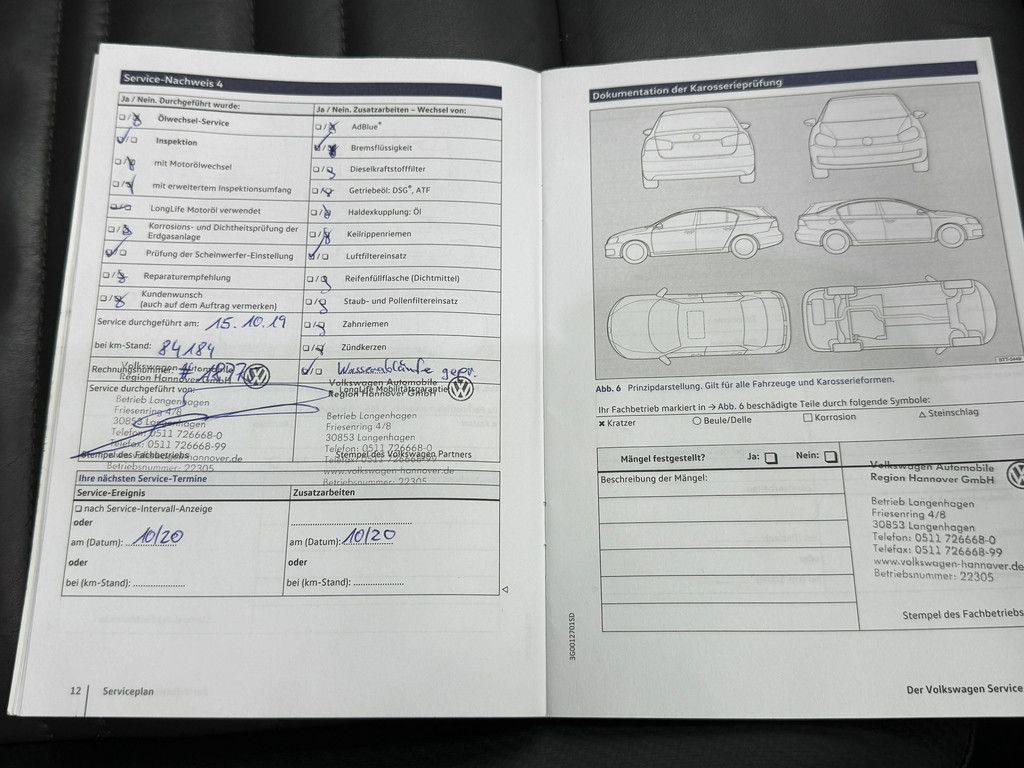 Service-Nachweis 4
Ja / Nein. Durchgeführt wurde:
Ölwechsel-Service
Inspektion
mit Motorölwechsel
mit erweitertem Inspektionsumfang
LongLife Motoröl verwendet
Korrosions- und Dichtheitsprüfung der
Erdgasanlage
Prüfung der Scheinwerfer-Einstellung
Reparaturempfehlung
Kundenwunsch
(auch auf dem Auftrag vermerken)
Service durchgeführt am: 15.10.19
bei km-Stand: 84184
Rechnungsnummer:
Volkswagen Automobile
Region Hannover GmbH
Service durchgeführt von:
Betrieb Langenhagen
Friesenring 4/8
30853 Langenhagen
Telefon: 0511 726668-0
Telefax: 0511 726668-99
Stempel des Fachbetriebs
Betriebsnummer: 22305
Ja / Nein. Zusatzarbeiten – Wechsel von:
AdBlue®
Bremsflüssigkeit
Dieselkraftstofffilter
Getriebeöl: DSG®, ATF
Haldexkupplung: Öl
Keilrippenriemen
Luftfiltereinsatz
Reifenfüllflasche (Dichtmittel)
Staub- und Pollenfiltereinsatz
Zahnriemen
Zündkerzen
Wasserabläufe gepr.
Volkswagen Automobile
LongLife Mobilitätsgarantie
Region Hannover GmbH
Betrieb Langenhagen
Friesenring 4/8
30853 Langenhagen
Telefon: 0511 726668-0
Telefax: 0511 726668-99
Stempel des Volkswagen Partners
www.volkswagen-hannover.de
Betriebsnummer: 22305
Ihre nächsten Service-Termine
Service-Ereignis
nach Service-Intervall-Anzeige
oder
am (Datum): 10/20
oder
bei (km-Stand):
Zusatzarbeiten
am (Datum): 10/20
oder
bei (km-Stand):
12 Serviceplan
Dokumentation der Karosserieprüfung
BTT-0449
Abb. 6 Prinzipdarstellung. Gilt für alle Fahrzeuge und Karosserieformen.
Ihr Fachbetrieb markiert in → Abb. 6 beschädigte Teile durch folgende Symbole:
× Kratzer ○ Beule/Delle □ Korrosion △ Steinschlag
Mängel festgestellt? Ja: Nein:
Beschreibung der Mängel:
Volkswagen Automobile
Region Hannover GmbH
Betrieb Langenhagen
Friesenring 4/8
30853 Langenhagen
Telefon: 0511 726668-0
Telefax: 0511 726668-99
www.volkswagen-hannover.de
Betriebsnummer: 22305
Stempel des Fachbetriebs
3G0012701SD
Der Volkswagen Service